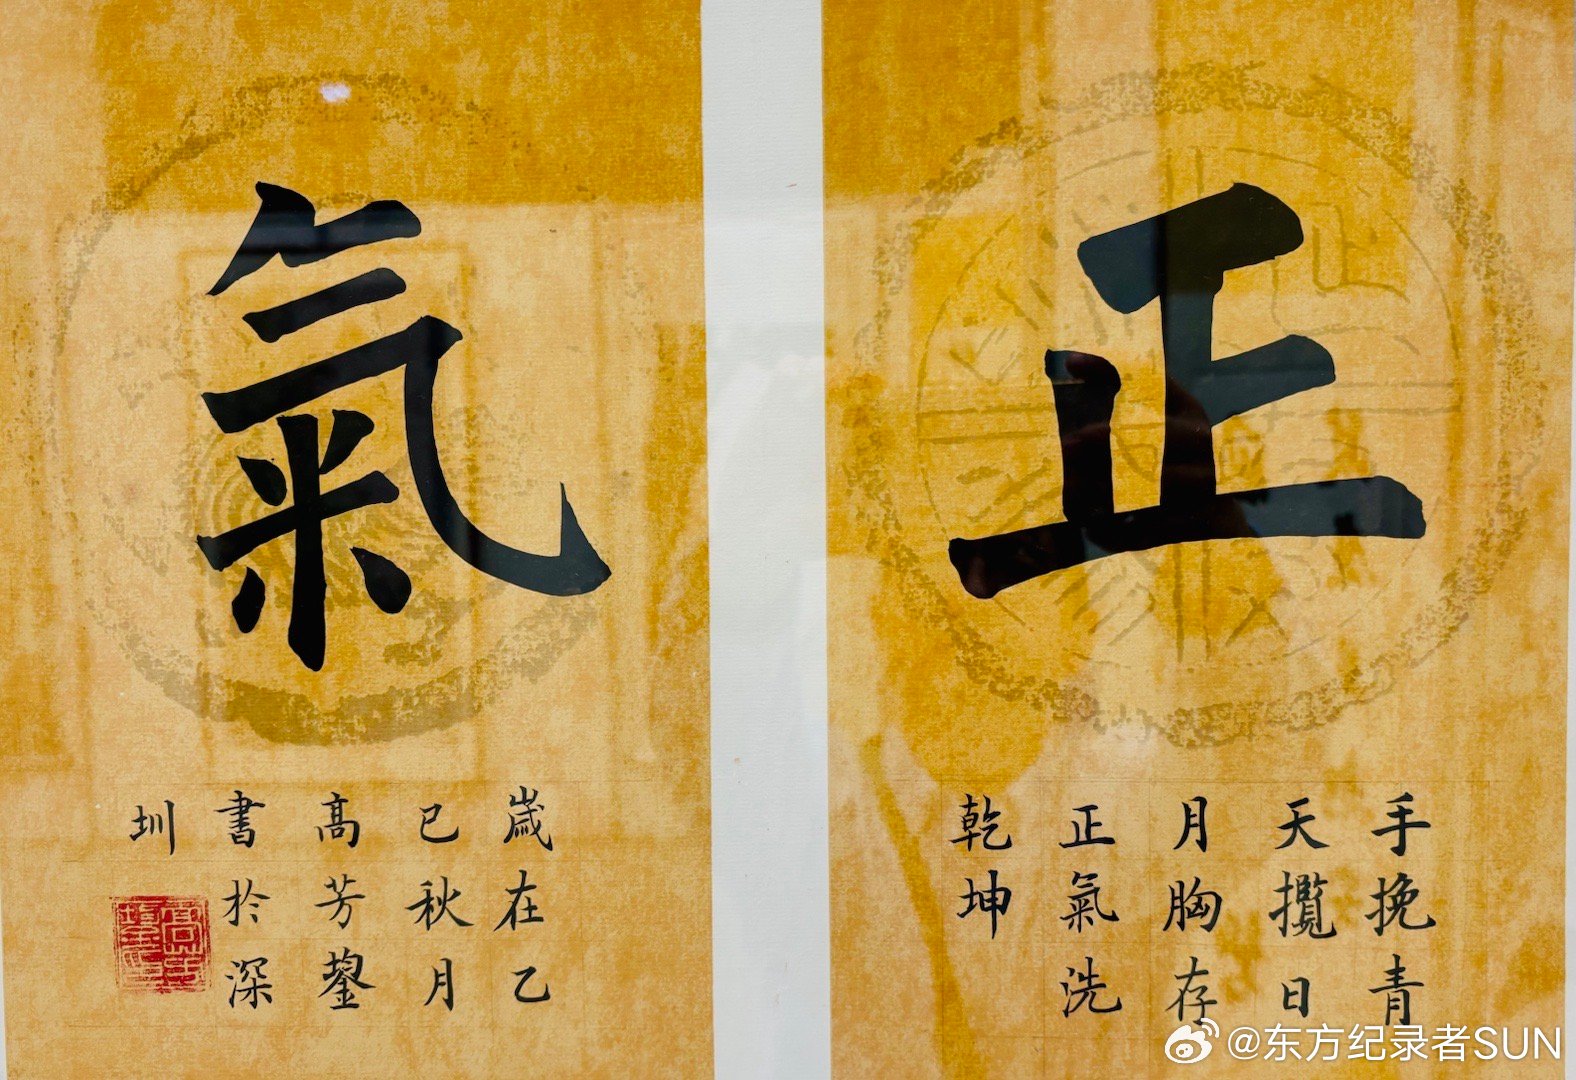 正
手挽青
天攬日
月胸存
正氣洗
乾坤
氣
嵗在乙
巳秋月
髙芳鋆
書於深
圳
@东方纪录者SUN